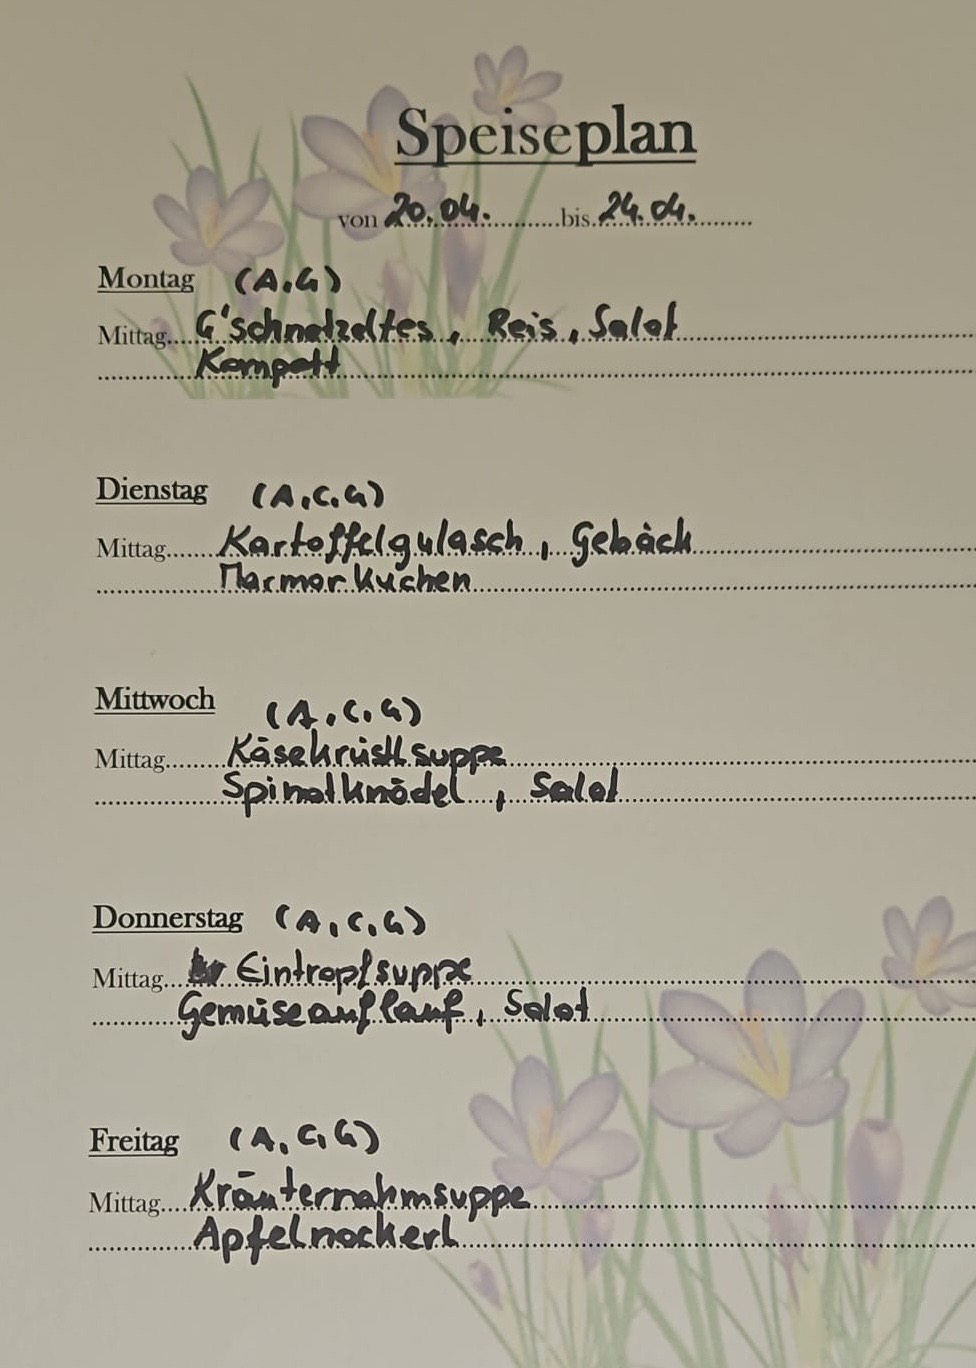 Speiseplan
von 20.04. bis 24.04.
Montag (A,G)
Mittag G'schnetzeltes, Reis, Salat
Kompott
Dienstag (A,C,G)
Mittag Kartoffelgulasch, Gebäck
Marmorkuchen
Mittwoch (A,C,G)
Mittag Käsekrüstlsuppe
Spinatknödel, Salat
Donnerstag (A,C,G)
Mittag Eintropfsuppe
Gemüseauflauf, Salat
Freitag (A,C,G)
Mittag Kräuterrahmsuppe
Apfelnockerl